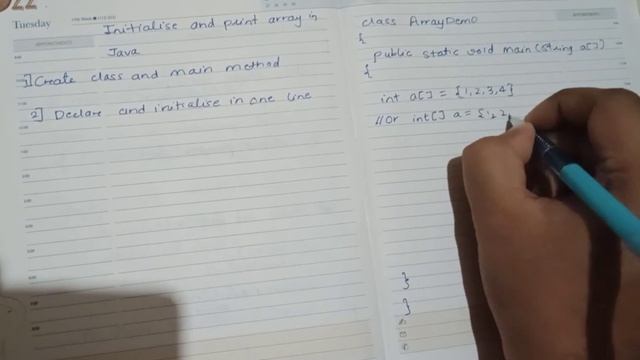 22
Tuesday
Initialise and print array in
Java
APPOINTMENTS
1] Create class and main method
2] Declare and initialise in one line
class ArrayDemo
{
public static void main(String a[])
{
int a[] = {1,2,3,4}
//Or int[] a = {1,2,
}
}